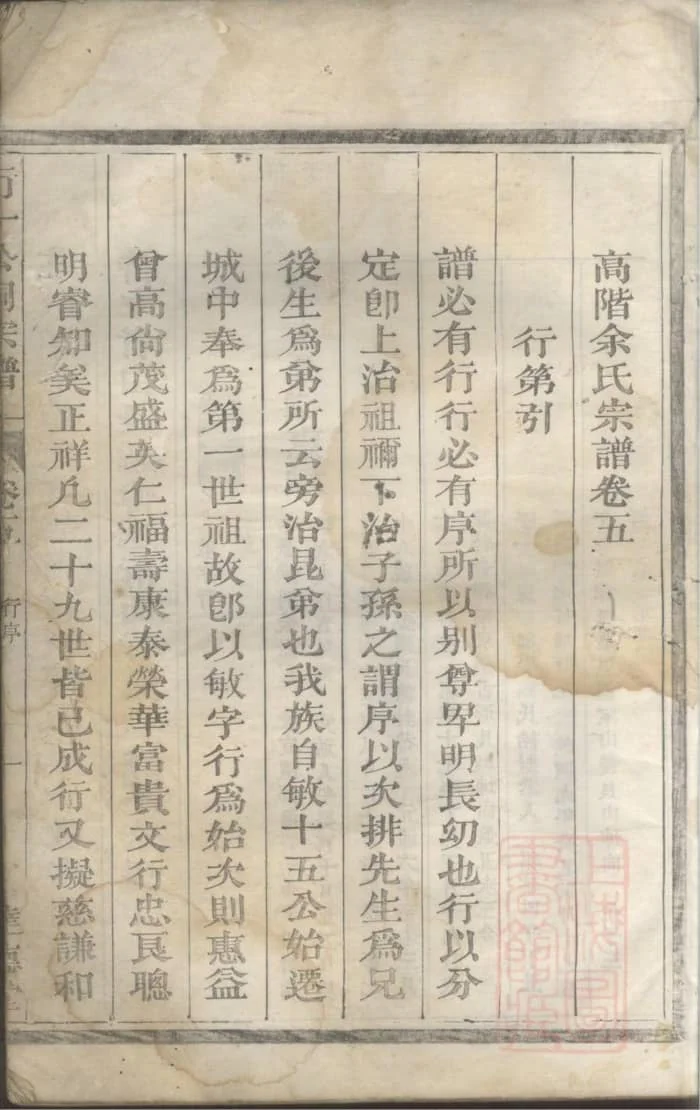 高階余氏宗譜卷五
行第引
譜必有行行必有序所以别尊卑明長幼也行以分
定卽上治祖禰下治子孫之謂序以次排先生爲兄
後生爲弟所云旁治昆弟也我族自敏十五公始遷
城中奉爲第一世祖故卽以敏字行爲始次則惠益
曾高尙茂盛英仁福壽康泰榮華富貴文行忠良聰
明睿知矣正祥凡二十九世皆已成行又擬慈謙和
宗譜
卷五
行序
一